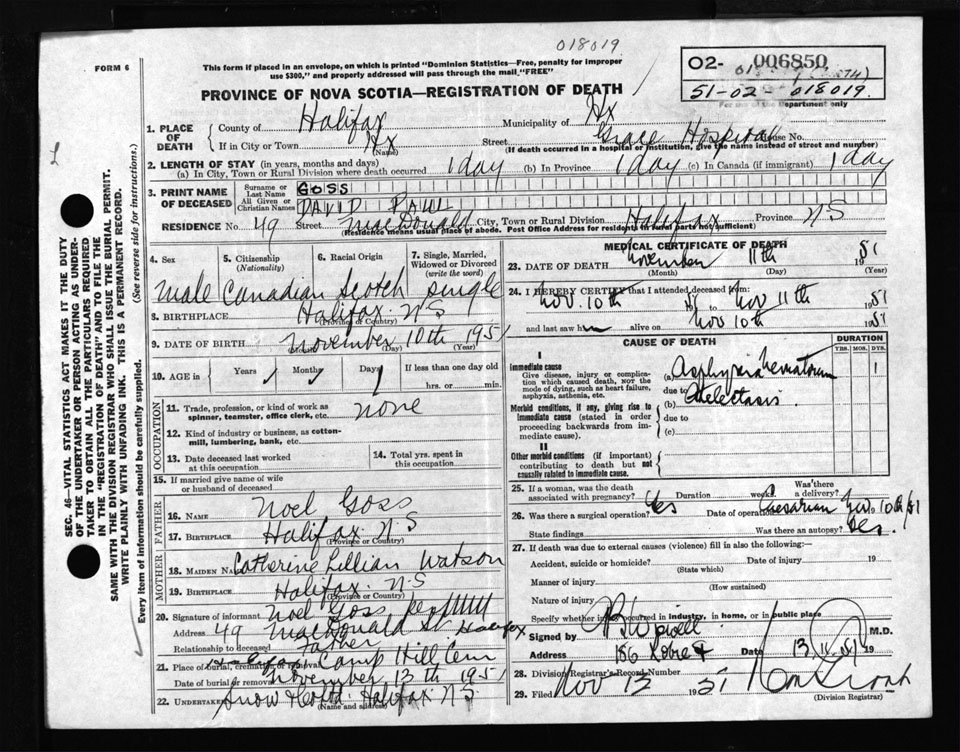 018019
FORM 6
This form if placed in an envelope, on which is printed "Dominion Statistics—Free, penalty for improper
use $300," and properly addressed will pass through the mail "FREE"
O2- 006850
51-02-018019.
For use of the Department only
PROVINCE OF NOVA SCOTIA—REGISTRATION OF DEATH
1. PLACE OF DEATH { County of Halifax Municipality of Hx
If in City or Town Hx (Name) Street Grace Hospital House No.
(If death occurred in a hospital or institution, give the name instead of street and number)
2. LENGTH OF STAY (in years, months and days)
(a) In City, Town or Rural Division where death occurred 1 day (b) In Province 1 day (c) In Canada (if immigrant) 1 day
3. PRINT NAME OF DECEASED { Surname or Last Name GOSS
All Given or Christian Names DAVID PAUL
RESIDENCE No. 49 Street MacDonald City, Town or Rural Division Halifax Province NS
(Residence means usual place of abode. Post Office Address for residents in rural parts not sufficient)
4. Sex 5. Citizenship (Nationality) 6. Racial Origin 7. Single, Married, Widowed or Divorced (write the word)
Male Canadian Scotch single
8. BIRTHPLACE Halifax N S
(Province or Country)
9. DATE OF BIRTH November 10th 1951
(Month) (Day) (Year)
10. AGE in { Years Months Days 1 If less than one day old
hrs. or min.
OCCUPATION
11. Trade, profession, or kind of work as
spinner, teamster, office clerk, etc. none
12. Kind of industry or business, as cotton-
mill, lumbering, bank, etc.
13. Date deceased last worked
at this occupation
14. Total yrs. spent in
this occupation
15. If married give name of wife
or husband of deceased
FATHER
16. NAME Noel Goss
17. BIRTHPLACE Halifax N S
(Province or Country)
MOTHER
18. MAIDEN NAME Catherine Lillian Watson
19. BIRTHPLACE Halifax. N S
(Province or Country)
20. Signature of informant Noel Goss
Address 49 MacDonald St Halifax
Relationship to deceased Father
21. Place of burial, cremation or removal Halifax Camp Hill Cem
Date of burial or removal November 13th 1951
22. UNDERTAKER Snow & Co Ltd. Halifax N S
(Name and address)
MEDICAL CERTIFICATE OF DEATH
23. DATE OF DEATH November 11th 1951
(Month) (Day) (Year)
24. I HEREBY CERTIFY that I attended deceased from:
Nov. 10th 1951 to Nov 11th 1951
and last saw him alive on Nov 10th 1951
CAUSE OF DEATH
DURATION
YRS. MOS. DYS.
I
Immediate cause
Give disease, injury or complica-
tion which caused death, NOT the
mode of dying, such as heart failure,
asphyxia, asthenia, etc.
(a) Asphyxia Neonatorum 1
due to
Morbid conditions, if any, giving rise to
immediate cause (stated in order
proceeding backwards from im-
mediate cause).
(b) Atelectasis
due to
(c)
II
Other morbid conditions (if important)
contributing to death but not
causally related to immediate cause.
25. If a woman, was the death
associated with pregnancy? Duration weeks. Was there
a delivery?
26. Was there a surgical operation? Yes Date of operation Caesarian Nov. 10th/51
State findings Was there an autopsy? Yes.
27. If death was due to external causes (violence) fill in also the following:—
Accident, suicide or homicide? Date of injury 19
(State which)
Manner of injury
(How sustained)
Nature of injury
Specify whether injury occurred in industry, in home, or in public place
Signed by M.D.
Address 186 Robie St Date 13. 11. 51 19
28. Division Registrar's Record Number
29. Filed Nov 13 1951
(Division Registrar)
SEC. 46—VITAL STATISTICS ACT MAKES IT THE DUTY
OF THE UNDERTAKER OR PERSON ACTING AS UNDER-
TAKER TO OBTAIN ALL THE PARTICULARS REQUIRED
IN THE "REGISTRATION OF DEATH" AND TO FILE THE
SAME WITH THE DIVISION REGISTRAR WHO SHALL ISSUE THE BURIAL PERMIT.
WRITE PLAINLY WITH UNFADING INK. THIS IS A PERMANENT RECORD.
Every item of information should be carefully supplied. (See reverse side for instructions.)